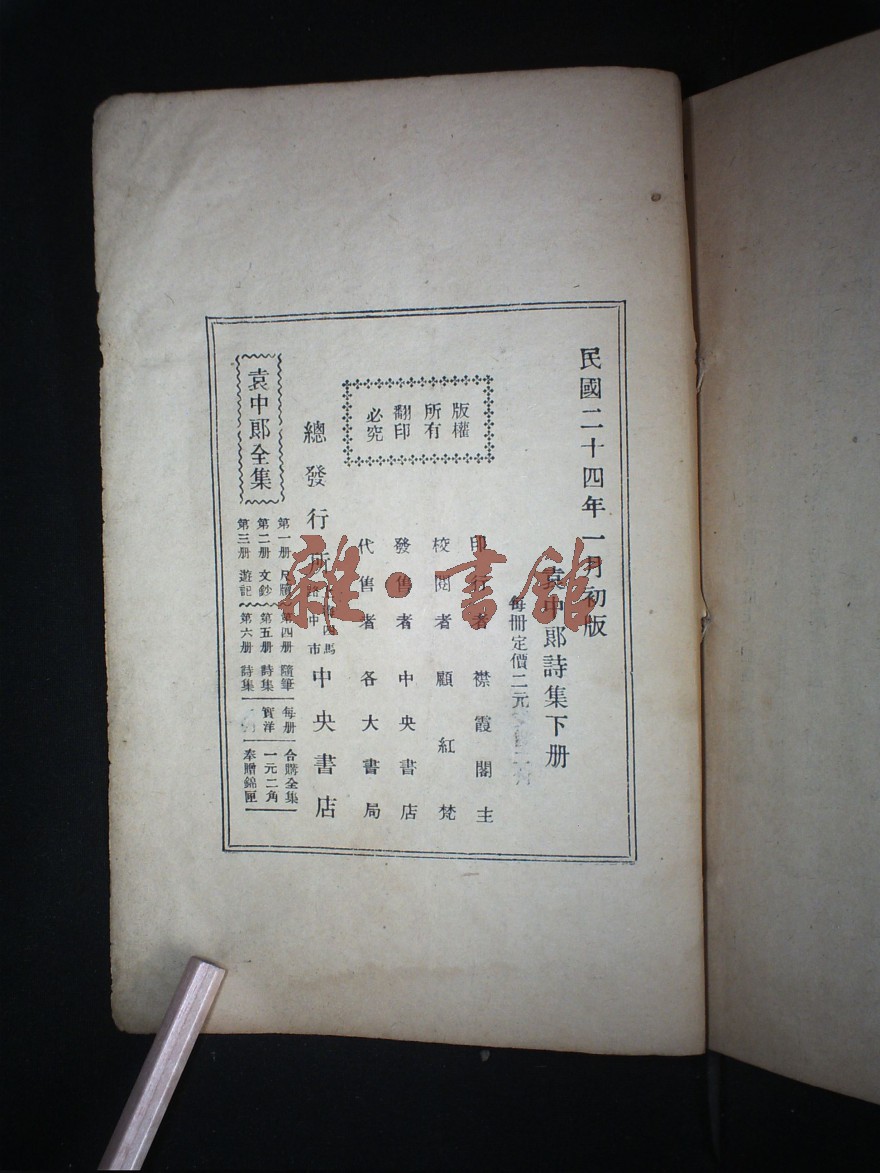 民國二十四年一月初版
袁中郎詩集下册
每冊定價二元
印行者 襟霞閣主
校閱者 顧紅梵
發售者 中央書店
代售者 各大書局
版權
所有
翻印
必究
總發行所 馬
路中市
中央書店
袁中郎全集
第一册 尺牘
第二册 文鈔
第三册 遊記
第四册 隨筆
第五册 詩集
第六册 詩集
每册
實洋
合購全集
一元二角
奉贈錦匣
雜·書館